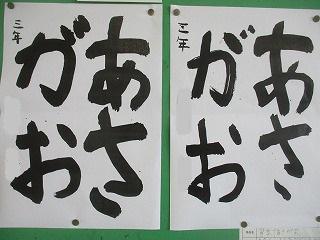 あさ
がお
三年
あさ
がお
三年